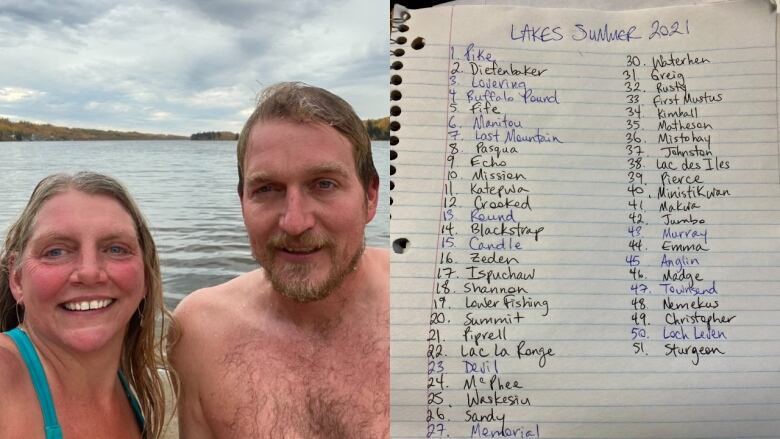 LAKES SUMMER 2021
1. Pike
2. Diefenbaker
3. Lovering
4. Buffalo Pound
5. Fife
6. Manitou
7. Last Mountain
8. Pasqua
9. Echo
10. Mission
11. Katepwa
12. Crooked
13. Round
14. Blackstrap
15. Candle
16. Zeden
17. Ispuchaw
18. Shannon
19. Lower Fishing
20. Summit
21. Piprell
22. Lac La Ronge
23. Devil
24. McPhee
25. Waskesiu
26. Sandy
27. Memorial
30. Waterhen
31. Greig
32. Rusty
33. First Mustus
34. Kimball
35. Matheson
36. Mistohay
37. Johnston
38. Lac des Iles
39. Pierce
40. Ministikwan
41. Makwa
42. Jumbo
43. Murray
44. Emma
45. Anglin
46. Madge
47. Townsend
48. Nemekus
49. Christopher
50. Loch Leven
51. Sturgeon